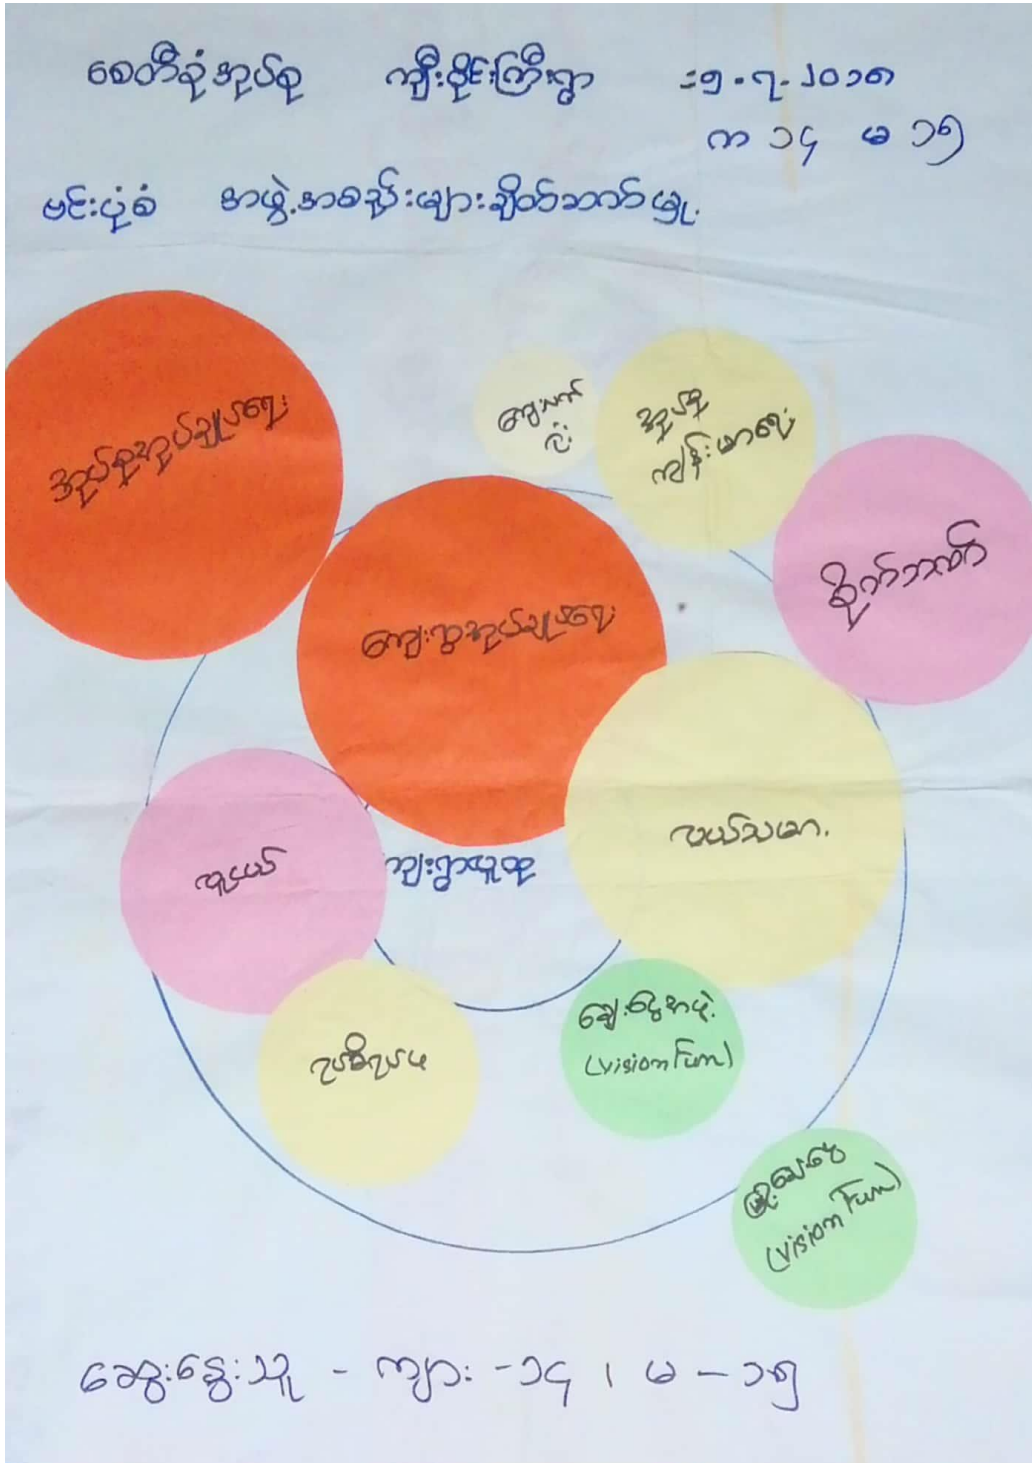 စေတီစုံအုပ်စု ကျီးဝိုင်းကြီးရွာ ၁၅.၇.၂၀၁၈
က ၁၄ မ ၁၅
ဗင်းပုံစံ အဖွဲ့အစည်းများချိတ်ဆက်မှု.
အုပ်စုအုပ်ချုပ်ရေး
အုပ်စု
ကျန်းမာရေး
စိုက်ဘဏ်
ကျေးရွာအုပ်ချုပ်ရေး
လယ်သမား
လူငယ်
ကျေးရွာလူထု
ရပ်မိရပ်ဖ
ချေးငွေအဖွဲ့
(vision Fun)
(vision Fun)
ဆွေးနွေးသူ - ကျား - ၁၄ ၊ မ - ၁၅